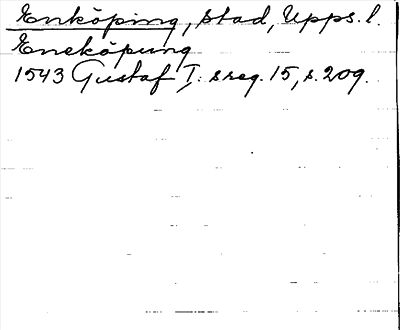 Enköping, stad, Upps. l.
Eneköpung
1543 Gustaf I: s reg. 15, s. 209.